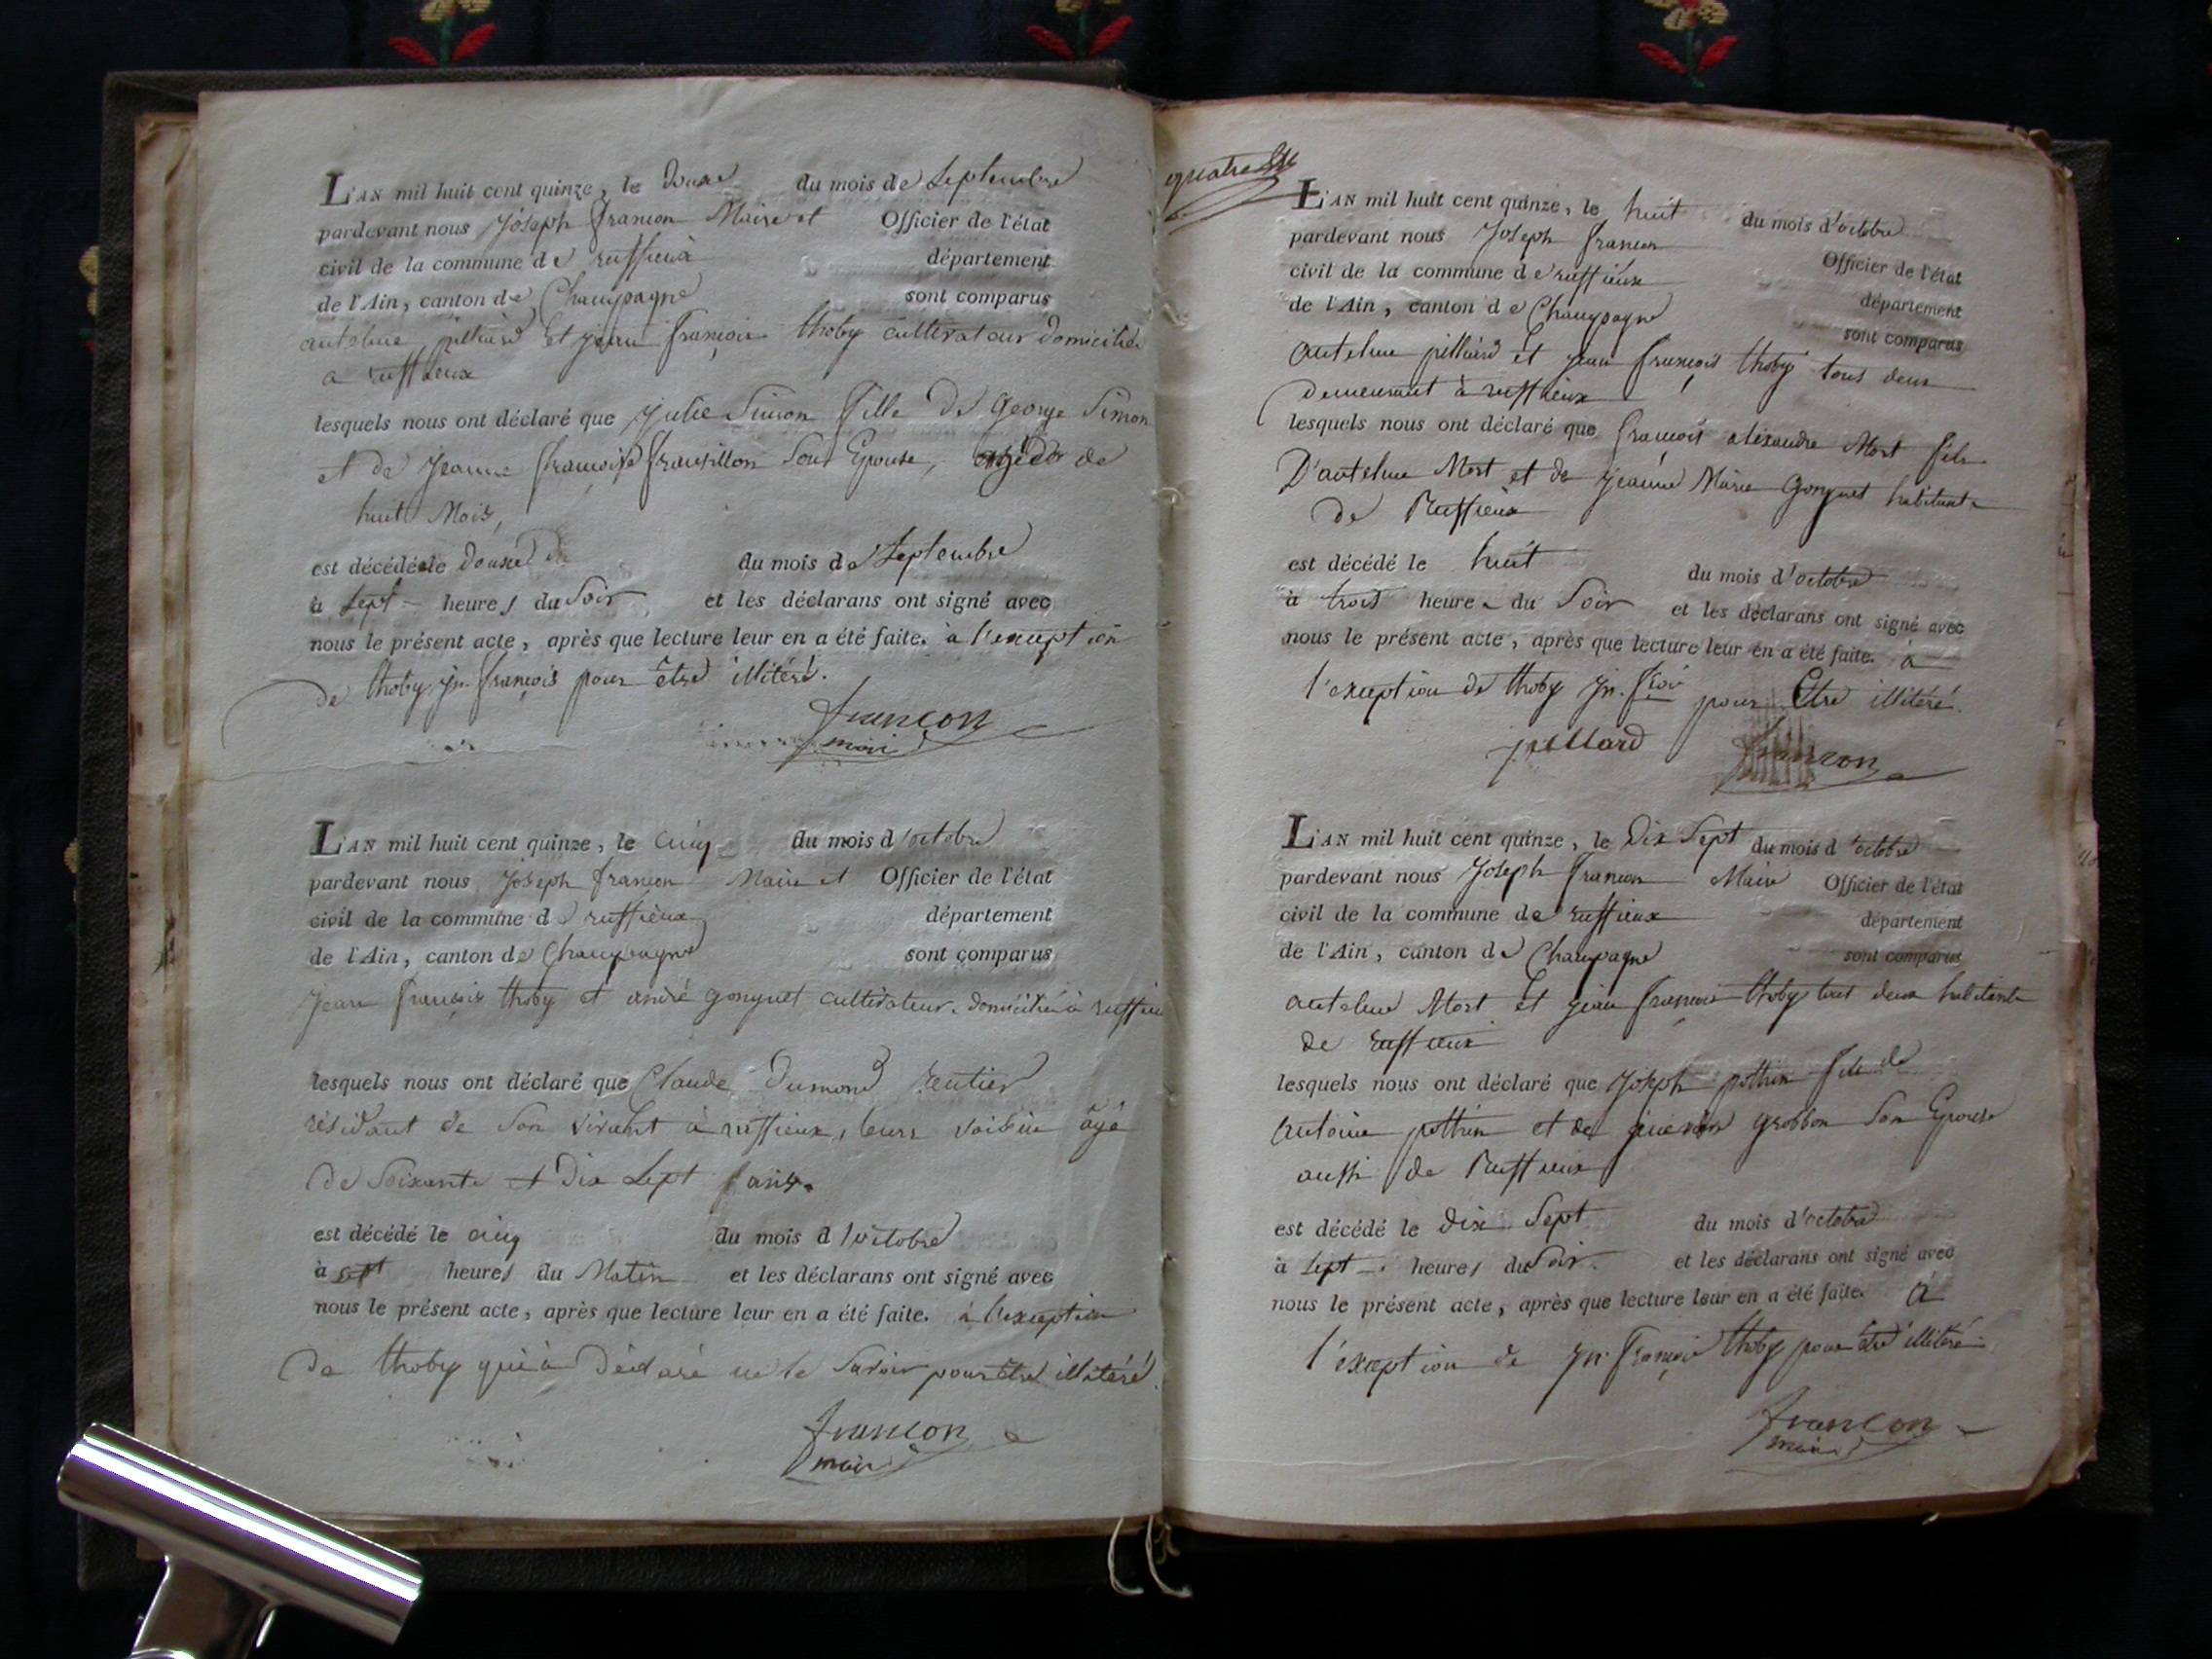 L'AN mil huit cent quinze, le douze du mois de Septembre
pardevant nous Joseph françon Maire et Officier de l'état
civil de la commune de ruffieux département
de l'Ain, canton de Champagne sont comparus
antelme pilliard Et jean françois thoby cultivatour domiciliés
a ruffieux
lesquels nous ont déclaré que Julie Simon fille de George Simon
et de Jeanne françoise Son Epouse, agée de
huit Mois,
est décédée le douze du mois de Septembre
à Sept heures du Soir et les déclarans ont signé avec
nous le présent acte, après que lecture leur en a été faite. à l'exeption
de thoby jn. françois pour être illitéré.
françon
maire
L'AN mil huit cent quinze, le cinq du mois d'octobre
pardevant nous Joseph françon Maire et Officier de l'état
civil de la commune de ruffieux département
de l'Ain, canton de Champagne sont comparus
Jean françois thoby et andré gonguet cultivateur domicilié à ruffieu
lesquels nous ont déclaré que Claude Dumond rentier
résidant de Son vivant à ruffieux, leur voisin âgé
de Soixante + Dix Sept ans.
est décédé le cinq du mois d'octobre
à sept heures du Matin et les déclarans ont signé avec
nous le présent acte, après que lecture leur en a été faite. à l'exeption
de thoby qui à Déclaré ne le Savoir pour être illitéré
françon
maire
quatre
L'AN mil huit cent quinze, le huit du mois d'octobre
pardevant nous Joseph françon Officier de l'état
civil de la commune de ruffieux département
de l'Ain, canton de Champagne sont comparus
antelme pilliard et jean françois thoby tous deux
demeurant à ruffieux
lesquels nous ont déclaré que françois aléxandre Mort fils
D'antelme Mort et de jeanne Marie Gonguet habitants
de Ruffieux
est décédé le huit du mois d'octobre
à trois heure du Soir et les déclarans ont signé avec
nous le présent acte, après que lecture leur en a été faite. à
l'exeption de thoby jn. fçois pour Etre illitéré.
pillard françon
L'AN mil huit cent quinze, le Dix Sept du mois d'octobre
pardevant nous Joseph françon Maire Officier de l'état
civil de la commune de ruffieux département
de l'Ain, canton de Champagne sont comparus
antelme Mort et jean françois thoby tous deux habitants
de ruffieux
lesquels nous ont déclaré que Joseph pothin fils de
Antoine pothin et de grobbon Son Epouse
aussi de Ruffieux
est décédé le dix Sept du mois d'octobre
à Sept heures du Soir. et les déclarans ont signé avec
nous le présent acte, après que lecture leur en a été faite. à
l'exeption de jn. françois thoby pour être illitéré
françon
maire